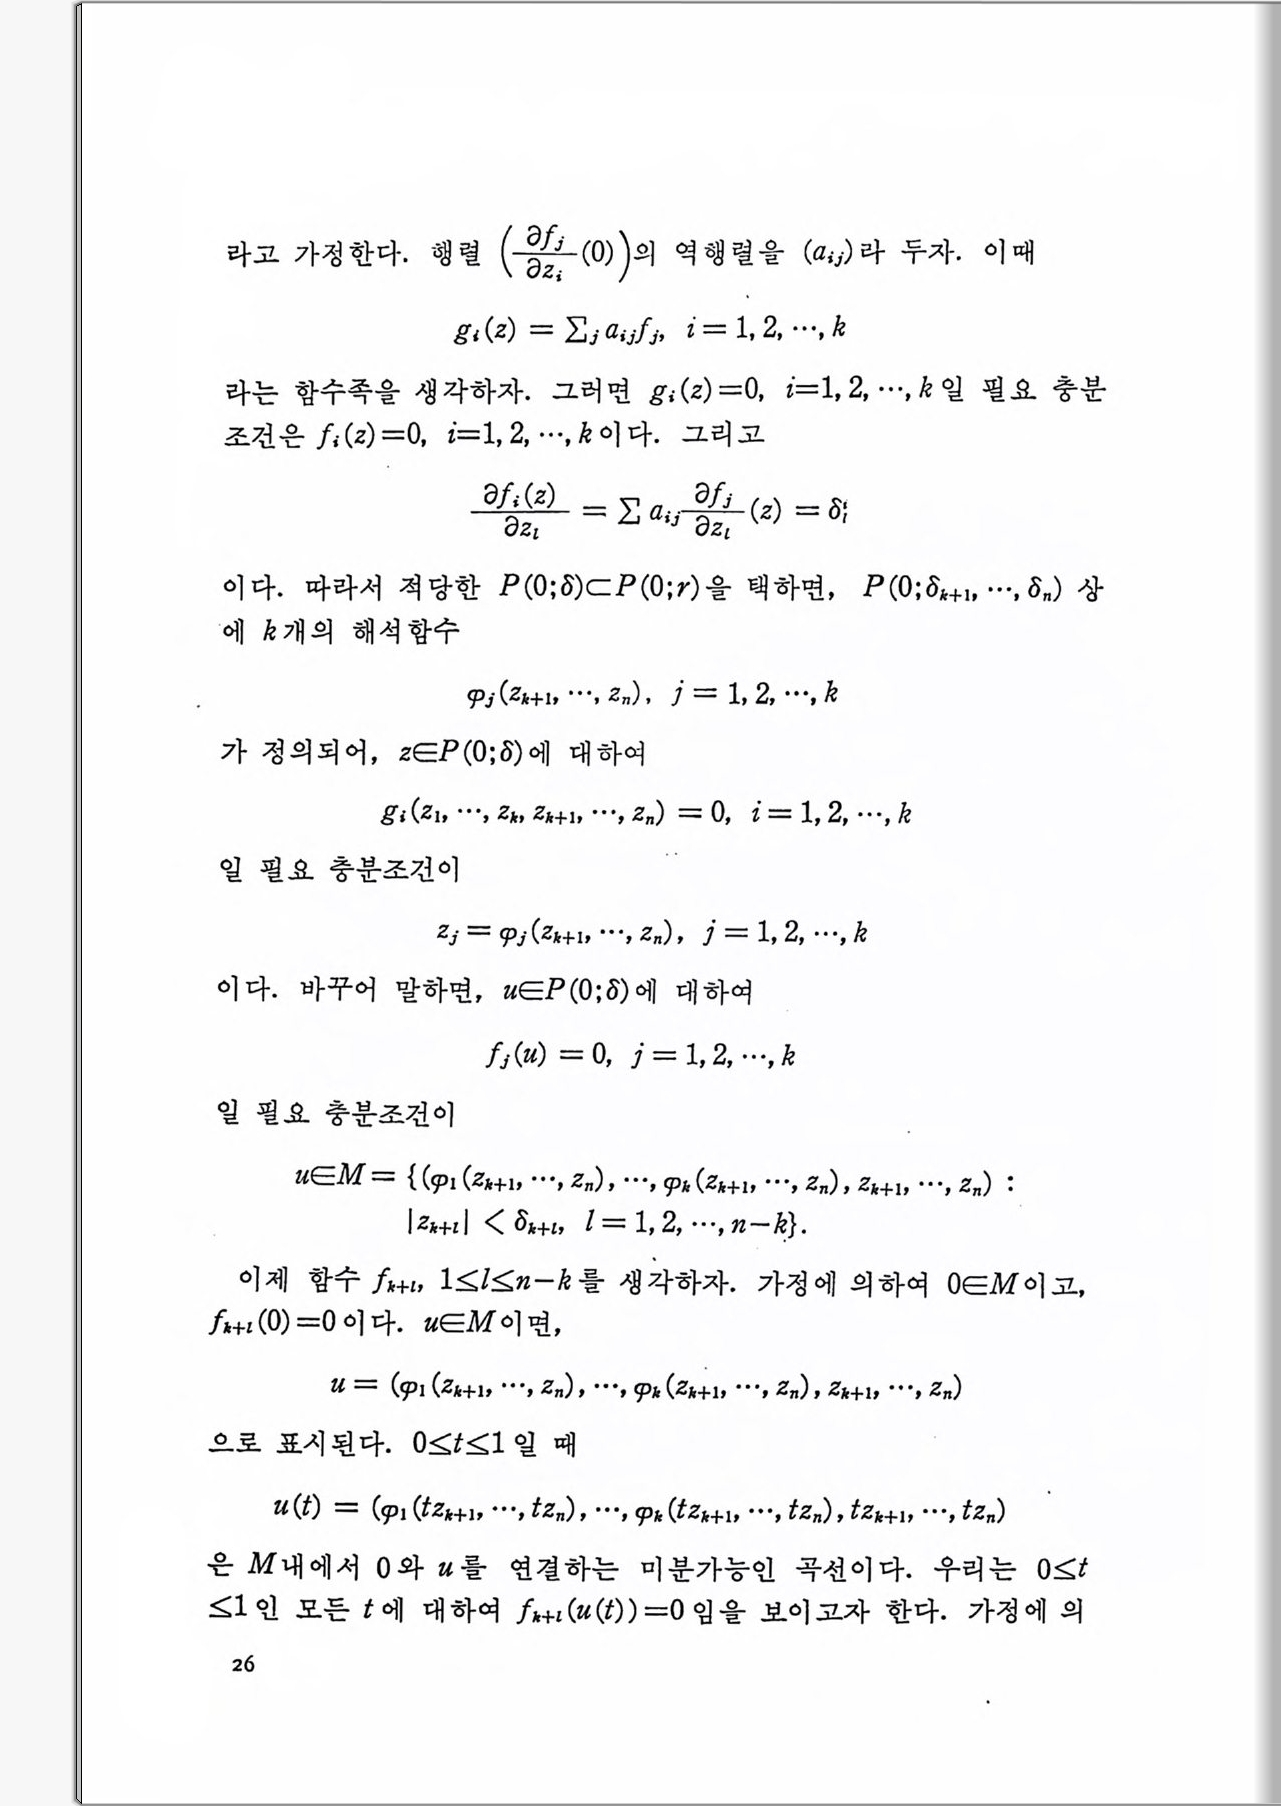 라고 가정한다. 행렬 (∂f_j/∂z_i (0))의 역행렬을 (a_{ij})라 두자. 이때
g_i(z) = ∑_j a_{ij}f_j, i = 1, 2, ⋯, k
라는 함수족을 생각하자. 그러면 g_i(z)=0, i=1, 2, ⋯, k일 필요 충분
조건은 f_i(z)=0, i=1, 2, ⋯, k이다. 그리고
∂f_i(z)/∂z_l = ∑ a_{ij} ∂f_j/∂z_l (z) = δ^i_l
이다. 따라서 적당한 P(0;δ)⊂P(0;r)을 택하면, P(0;δ_{k+1}, ⋯, δ_n) 상
에 k개의 해석함수
φ_j(z_{k+1}, ⋯, z_n), j = 1, 2, ⋯, k
가 정의되어, z∈P(0;δ)에 대하여
g_i(z_1, ⋯, z_k, z_{k+1}, ⋯, z_n) = 0, i = 1, 2, ⋯, k
일 필요 충분조건이
z_j = φ_j(z_{k+1}, ⋯, z_n), j = 1, 2, ⋯, k
이다. 바꾸어 말하면, u∈P(0;δ)에 대하여
f_j(u) = 0, j = 1, 2, ⋯, k
일 필요 충분조건이
u∈M = {(φ_1(z_{k+1}, ⋯, z_n), ⋯, φ_k(z_{k+1}, ⋯, z_n), z_{k+1}, ⋯, z_n) :
|z_{k+l}| < δ_{k+l}, l = 1, 2, ⋯, n−k}.
이제 함수 f_{k+l}, 1≤l≤n−k를 생각하자. 가정에 의하여 0∈M이고,
f_{k+l}(0)=0이다. u∈M이면,
u = (φ_1(z_{k+1}, ⋯, z_n), ⋯, φ_k(z_{k+1}, ⋯, z_n), z_{k+1}, ⋯, z_n)
으로 표시된다. 0≤t≤1일 때
u(t) = (φ_1(tz_{k+1}, ⋯, tz_n), ⋯, φ_k(tz_{k+1}, ⋯, tz_n), tz_{k+1}, ⋯, tz_n)
은 M내에서 0와 u를 연결하는 미분가능인 곡선이다. 우리는 0≤t
≤1인 모든 t에 대하여 f_{k+l}(u(t))=0임을 보이고자 한다. 가정에 의
26